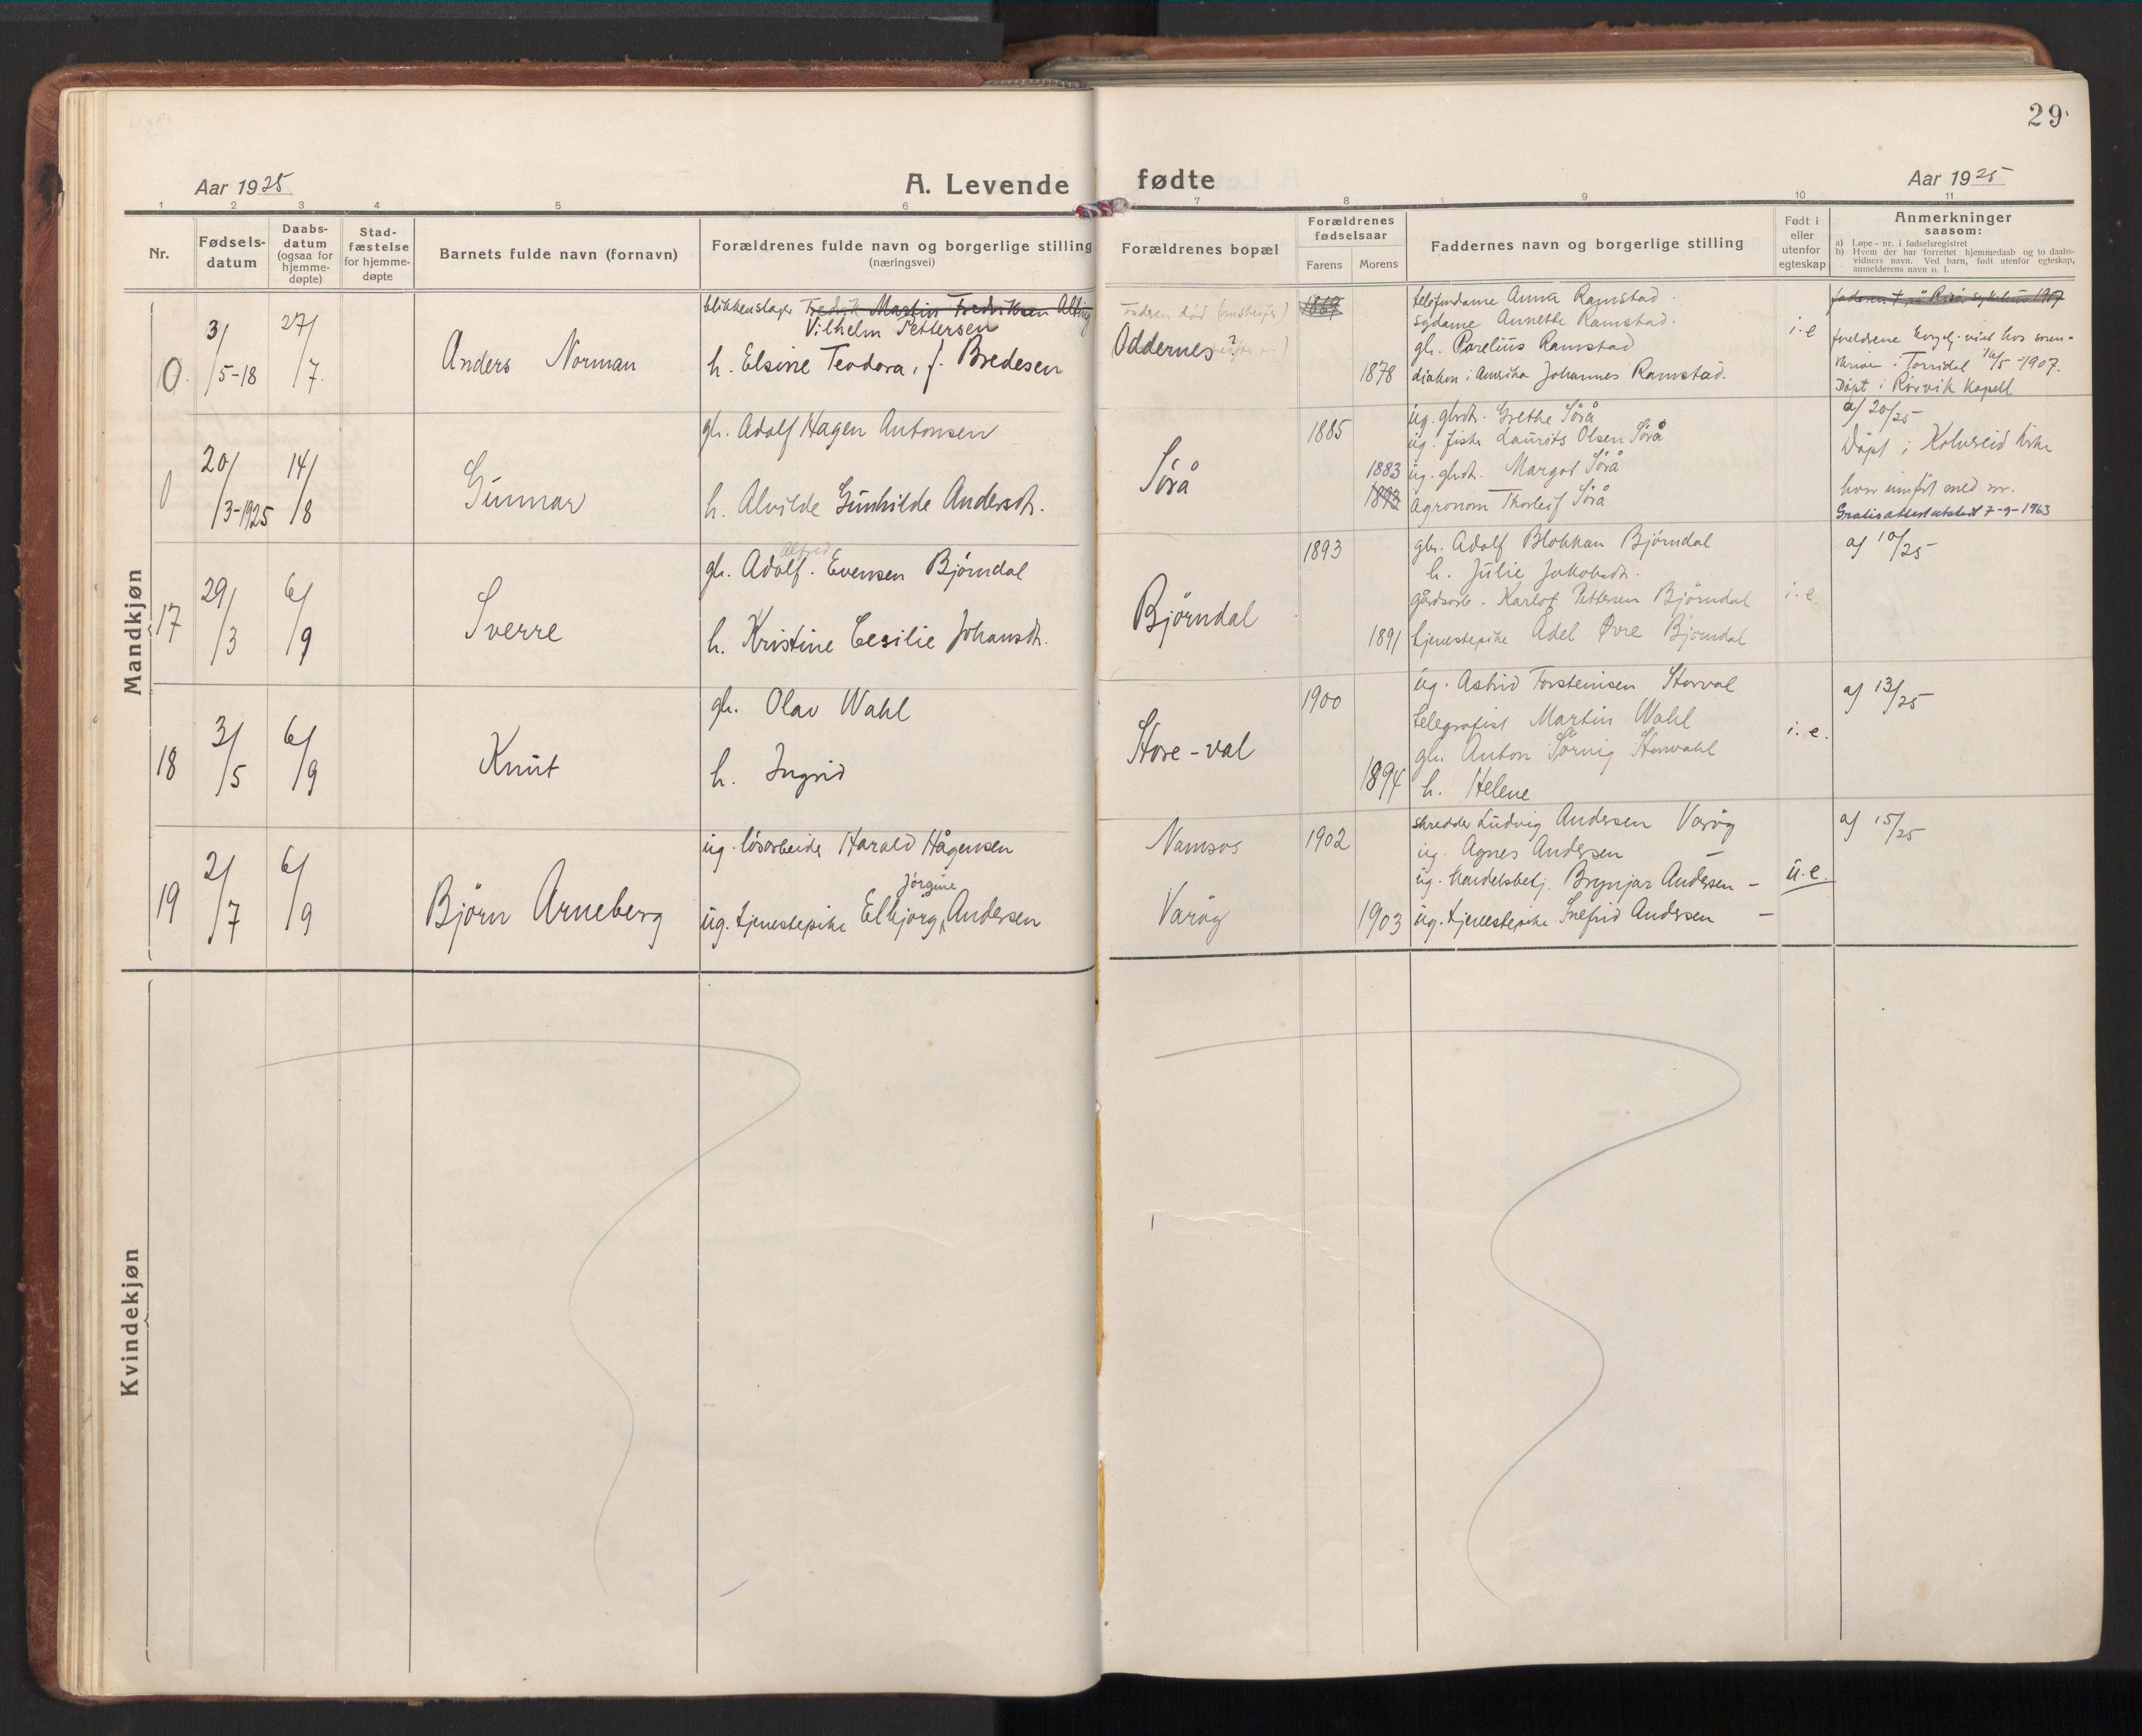 29
Aar 1925
A. Levende
fødte
Aar 1925
1 2 3 4 5 6 7 8 9 10 11
Nr.
Fødsels-
datum
Daabs-
datum
(ogsaa for
hjemme-
døpte)
Stad-
fæstelse
for hjemme-
døpte
Barnets fulde navn (fornavn)
Forældrenes fulde navn og borgerlige stilling
(næringsvei)
Forældrenes bopæl
Forældrenes
fødselsaar
Farens
Morens
Faddernes navn og borgerlige stilling
Født i
eller
utenfor
egteskap
Anmerkninger
saasom:
a) Løpe-nr. i fødselsregistret
b) Hvem der har forrettet hjemmedaab og to daabs-
vidners navn. Ved barn, født utenfor egteskap,
anmelderens navn o. l.
Mandkjøn
0.
3/5-18
27/7.
Anders Norman
blikkenslager Fredrik Martin Fredriksen
Vilhelm Pettersen
h. Elsine Teodora, f. Bredesen
Faderen död
Oddernes ?
1869
1878
telefondame Anna Ramstad.
sydame Annette Ramstad.
gbr. Parelius Ramstad
diakon i Amerika Johannes Ramstad.
i. e
faderen † på sykehus 1907
foreldrene borgl. viet hos soren-
skriver i Torridal 16/5-1907.
Döpt i Rörvik kapell
0
20/3-1925
14/8
Gunnar
gbr. Adolf Hagen Antonsen
h. Alvilde Gunhilde Andersdt.
Sörå
1885
1883
1892
ug. gbrdt. Grethe Sörå
ug. fisker Laurits Olsen Sörå
ug. gbrdt. Margot Sörå
Agronom Thorleif Sörå
a) 20/25
Döpt i Kolvereid kirke
hvor innfört med nr.
Gratisattest utstedt 7-9-1963
17
29/3
6/9
Sverre
Alfred
gbr. Adolf. Evensen Björndal
h. Kristine Cesilie Johansdt.
Björndal
1893
1891
gbr. Adolf Blokkan Björndal
h. Julie Jakobsdt.
gårdsarb. Karlof Pettersen Björndal
tjenestepike Adel Øvre Björndal
i. e.
a) 10/25
18
3/5
6/9
Knut
gbr. Olav Wahl
h. Ingrid
Store-val
1900
1894
ug. Astrid Torsteinsen Storval
telegrafist Martin Wahl
gbr. Anton Sörvig Storvahl
h. Helene
i. e.
a) 13/25
19
2/7
6/9
Björn Arneberg
ug. lösarbeider Harald Hågensen
Jörgine
ug. tjenestepike Elbjörg Andersen
Namsos
Varöy
1902
1903
skredder Ludvig Andersen Varöy
ug. Agnes Andersen —
ug. Handelsbetj. Brynjar Andersen —
ug. tjenestepike Snefrid Andersen —
u. e.
a) 15/25
Kvindekjøn